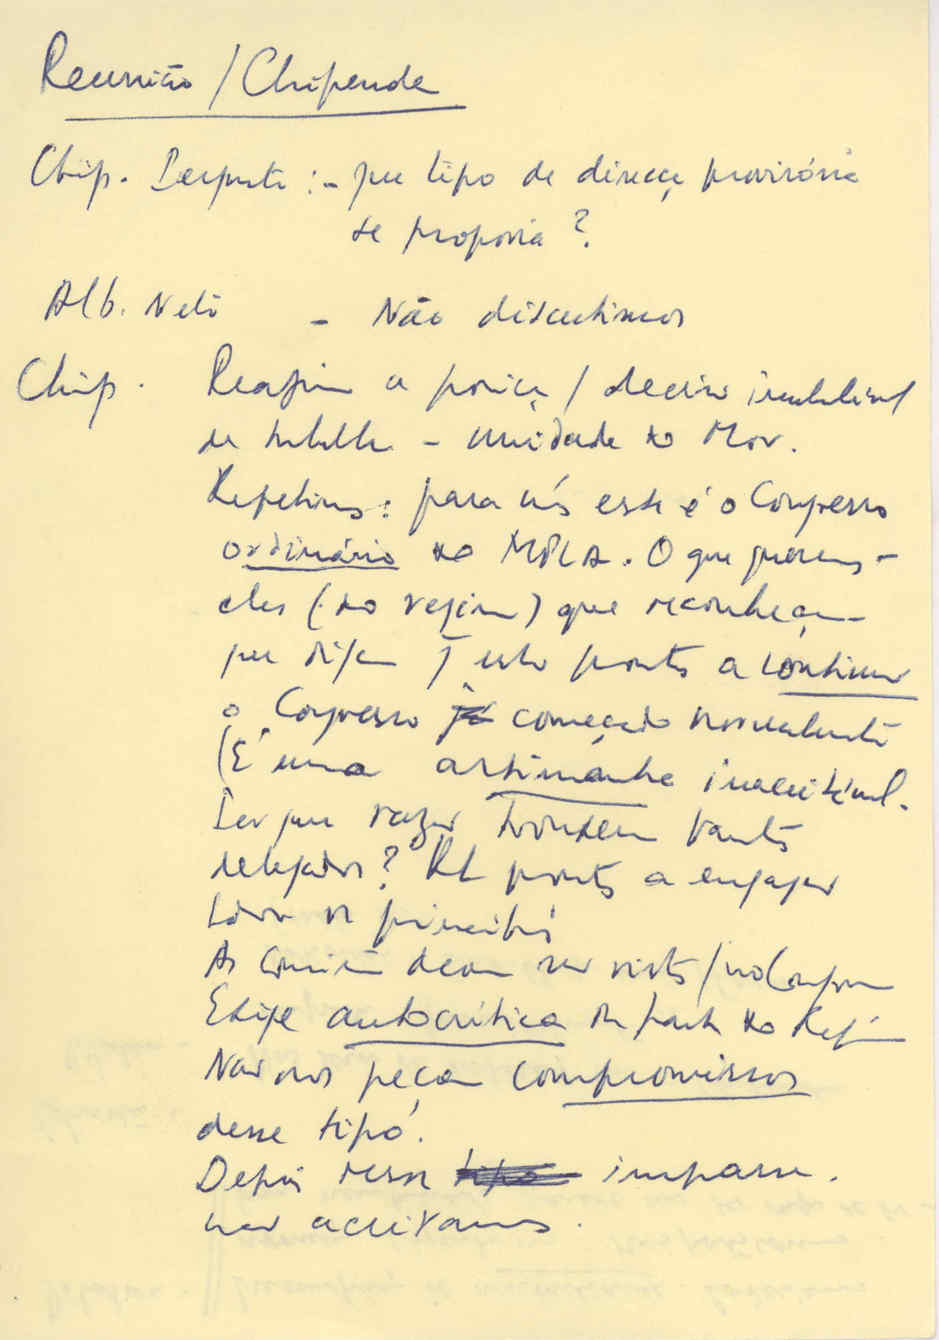 Reunião / Chipenda
Chip. Pergunta :- que tipo de direcç provisória
se proporia ?
Alb. Neto - Não discutimos
Chip. Reafirm a posiç / decisão
de trabalh - unidade do Mov.
Repetimos : para nós este é o Congresso
ordinário do MPLA. O que querem -
eles (do regim) que reconheçam
que digam estão prontos a continuar
o Congresso já começado normalmente
(É uma artimanha inaceitável.
Por que razão trouxeram tantos
delegados ? RL prontos a engajar
As devem ser vistas / no Congresso
Exige autocrítica da parte do
Não nos peçam compromissos
desse tipo.
Depois impasse.
não aceitamos.